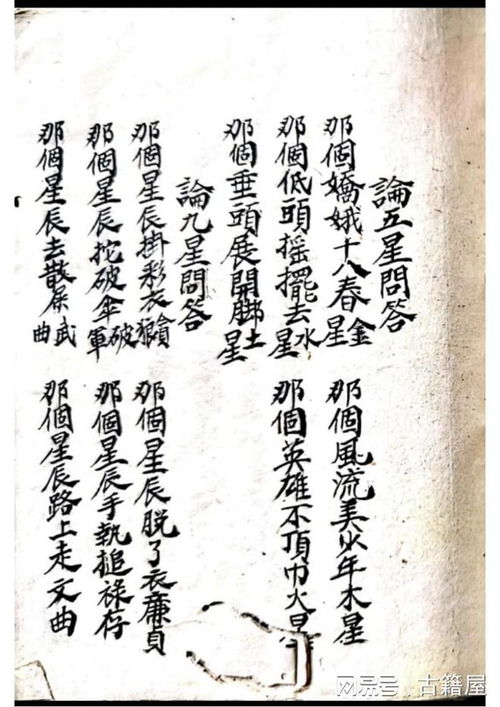 論五星問答
那個嬌娥十八春金星 那個風流美少年木星
那個低頭搖擺去水星 那個英雄不頂巾火星
那個垂頭展開脚土星
論九星問答
那個星辰掛彩衣 那個星辰脫了衣廉貞
那個星辰拕破傘破軍 那個星辰手執槌祿存
那個星辰去散武曲 那個星辰路上走文曲
网易号 | 古籍屋